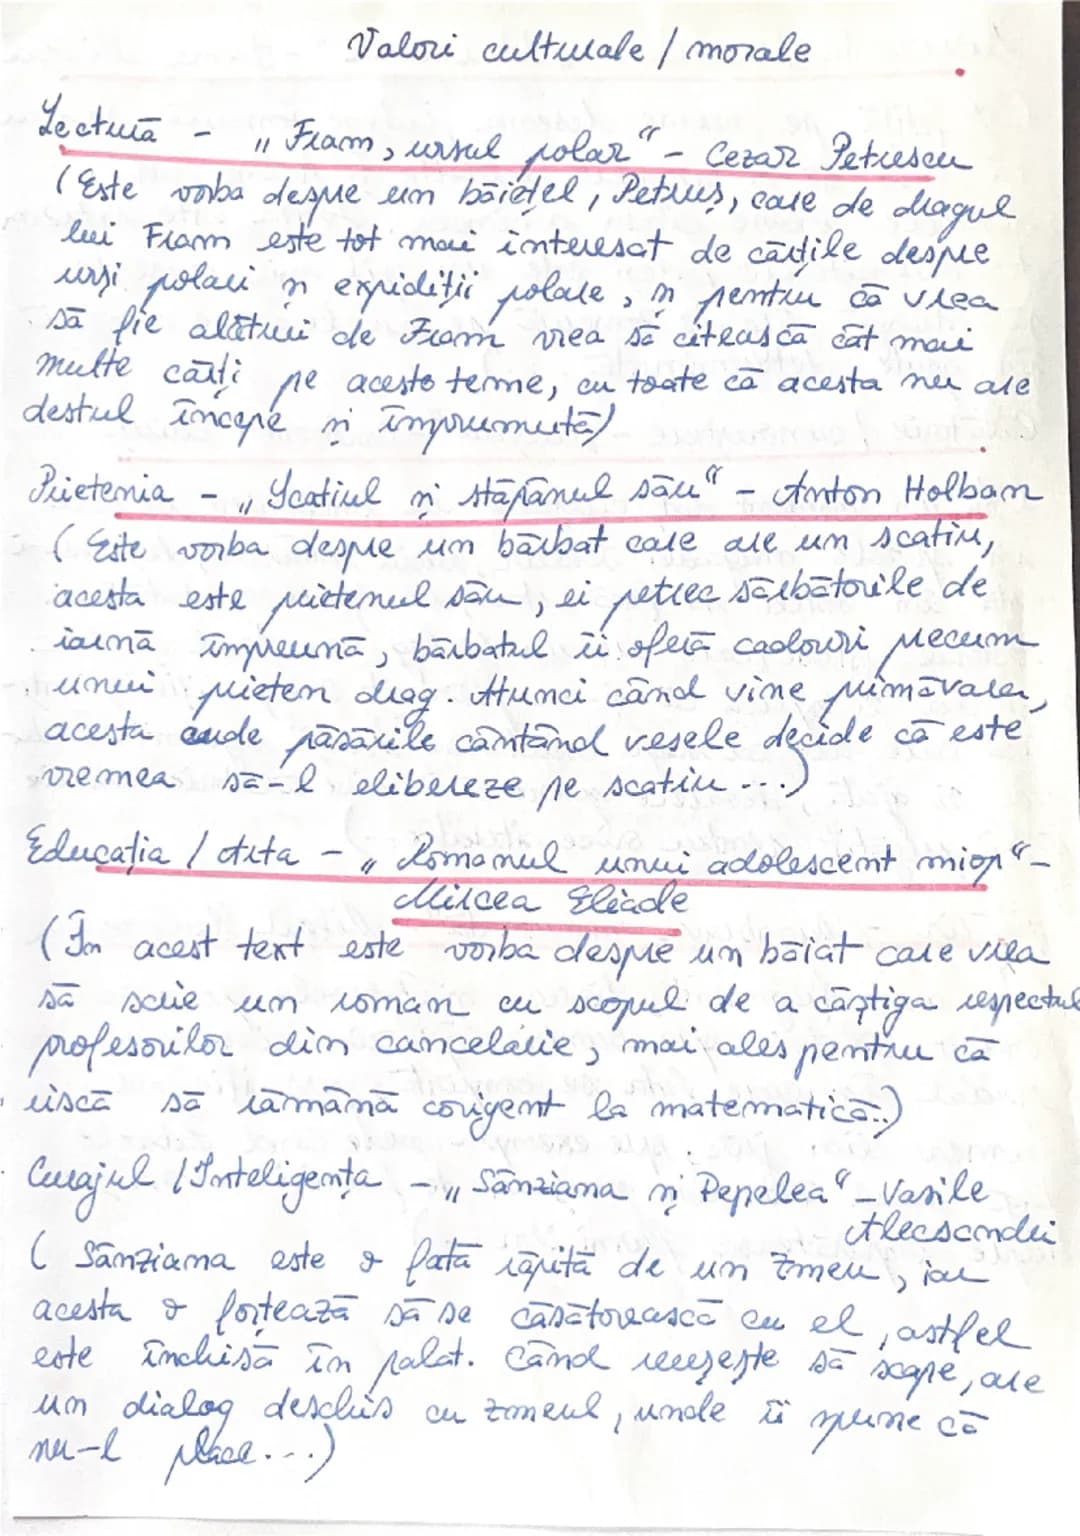 Valori culturale / morale
Lectură - „Fram, ursul polar" - Cezar Petrescu
(Este vorba despre un băiețel, Petruș, care de dragul
lui Fram este tot mai interesat de cărțile despre
urși polari și expidiții polare, și pentru că vrea
să fie alături de Fram vrea să citească cât mai
multe cărți pe acesto teme, cu toate că acesta nu are
destul începe și împrumută)
Prietenia - „Scatiul și stăpânul său" - Anton Holban
(Este vorba despre un bărbat care are un scatiu,
acesta este prietenul său, ei petrec sărbătorile de
iarnă împreună, bărbatul îi oferă cadouri precum
unui prieten drag. Atunci când vine primăvara,
acesta aude păsările cântând vesele decide că este
vremea să-l elibereze pe scatiu...)
Educația / Arta - „Romanul unui adolescent miop" -
Mircea Eliade
(În acest text este vorba despre un băiat care vrea
să scrie un roman cu scopul de a câștiga respectul
profesorilor din cancelarie, mai ales pentru că
riscă să rămână corigent la matematică..)
Curajul / Inteligența - „Sânziana și Pepelea" - Vasile
Alecsandri
(Sânziana este o fată răpită de un zmeu, iar
acesta o forțează să se căsătorească cu el, astfel
este închisă în palat. Când reușește să scape, are
un dialog deschis cu zmeul, unde îi spune că
nu-l place...)